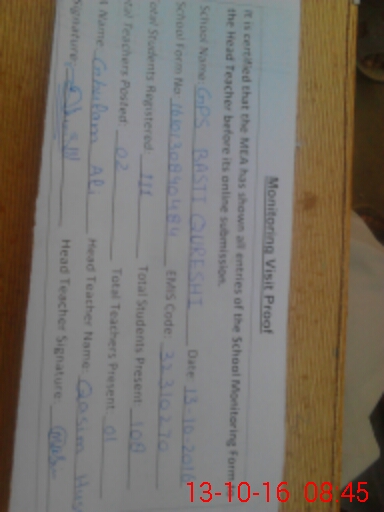 Monitoring Visit Proof
It is certified that the MEA has shown all entries of the School Monitoring Form to
the Head Teacher before its online submission.
School Name GPS BASTI QURESHI Date: 13-10-2016
School Form No: EMIS Code: 32210270
otal Students Registered: 111 Total Students Present: 108
tal Teachers Posted: 02 Total Teachers Present: 01
A Name: Ghulam Ali Head Teacher Name: Qasim Hus
Signature: Head Teacher Signature:
13-10-16 08:45